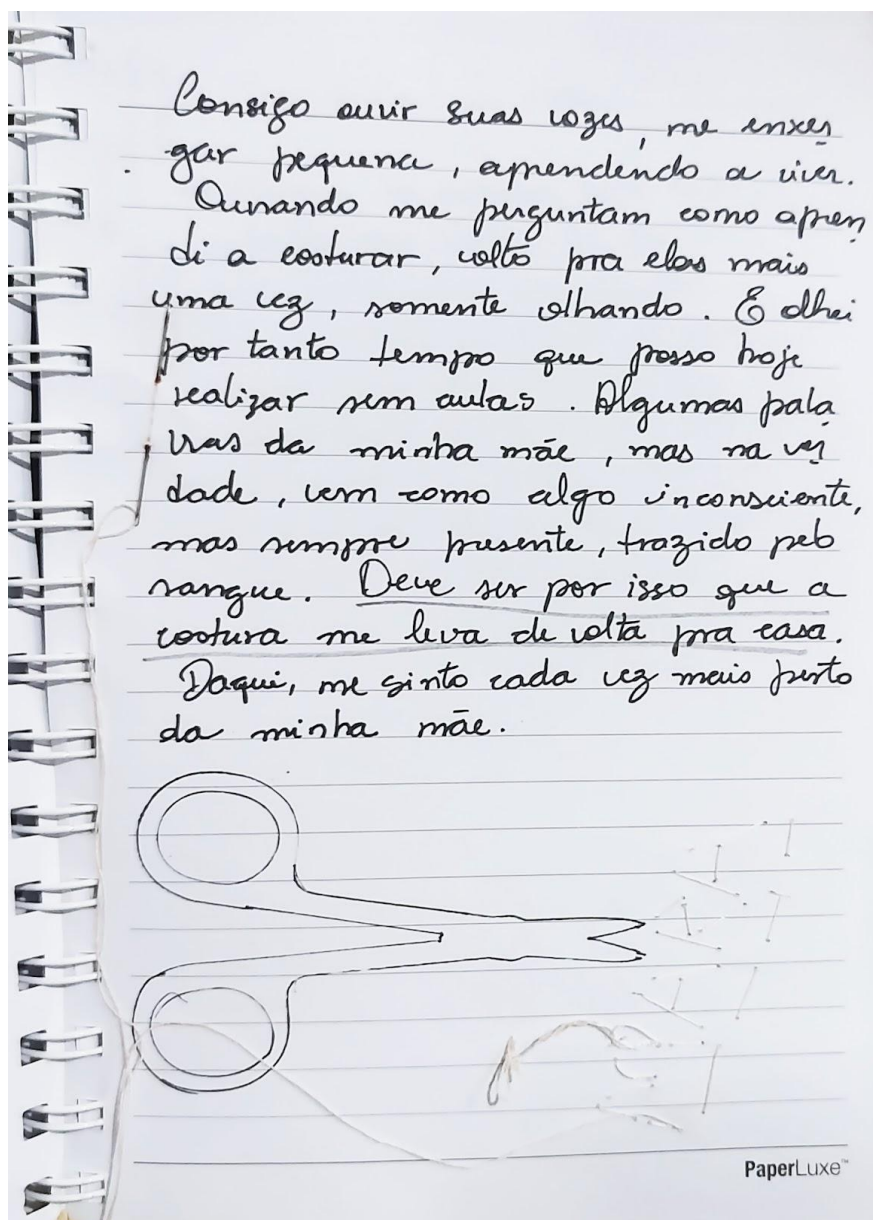 Consigo ouvir suas vozes, me enxer
gar pequena, aprendendo a viver.
Qunando me perguntam como apren
di a costurar, volto pra elas mais
uma vez, somente olhando. E olhei
por tanto tempo que posso hoje
realizar sem aulas. Algumas pala
vras da minha mãe, mas na ver
dade, vem como algo inconsciente,
mas sempre presente, trazido pelo
sangue. Deve ser por isso que a
costura me leva de volta pra casa.
Daqui, me sinto cada vez mais perto
da minha mãe.
PaperLuxe™